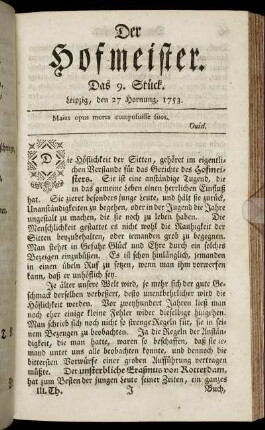 Der
Hofmeister.
Das 9. Stück.
Leipzig, den 27 Hornung, 1753.
Maius opus mores composuisse suos.
Ouid.
Die Höflichkeit der Sitten, gehöret im eigentli-
chen Verstande für das Gerichte des Hofmei-
sters. Sie ist eine anständige Tugend, die
in das gemeine Leben einen herrlichen Einfluß
hat. Sie zieret besonders junge Leute, und hält sie zurück,
Unanständigkeiten zu begehen, oder in der Jugend die Jahre
ungestalt zu machen, die sie noch zu leben haben. Die
Menschlichkeit gestattet es nicht wohl die Rauhigkeit der
Sitten beyzubehalten, oder jemanden grob zu begegnen.
Man stehet in Gefahr Glück und Ehre durch ein solches
Bezeigen einzubüßen. Es ist schon hinlänglich, jemanden
in einen übeln Ruf zu setzen, wenn man ihm vorwerfen
kann, daß er unhöflich sey.
Je älter unsre Welt wird, je mehr sich der gute Ge-
schmack derselben verbessert, desto unentbehrlicher wird die
Höflichkeit werden. Vor zweyhundert Jahren ließ man
noch eher einige kleine Fehler wider dieselbige hingehen.
Man schrieb sich noch nicht so strenge Regeln für, sie in sei-
nem Bezeugen zu beobachten. Ja die Regeln der Anstän-
digkeit, die man hatte, waren so beschaffen, daß sie je-
mand unter uns alle beobachten könnte, und dennoch die
bittersten Vorwürfe einer groben Aufführung vertragen
müßte. Der unsterbliche Erasmus von Rotterdam,
hat zum Besten der jungen Leute seiner Zeiten, ein ganzes
III. Th. J Buch,